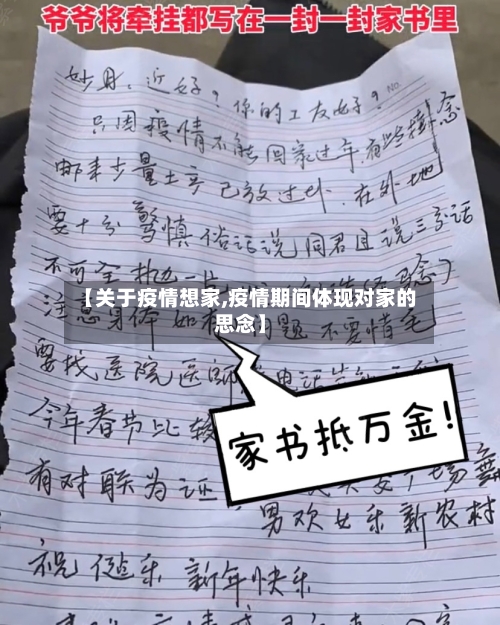 爷爷将牵挂都写在一封一封家书里
妙月,近好?你的工友好?
只因疫情不能回家过年,有些掛念
邮来少量土产已放过卦,在外地
要十分警慎,俗话说,同君且说三分话
不可全抛一片
【关于疫情想家,疫情期间体现对家的
思念】
注意身体 如 问题 不要惜毛
要找医院医师
家书抵万金!
今年春节比较
有对联为证
男欢女乐新农村
祝 乐 新年快乐